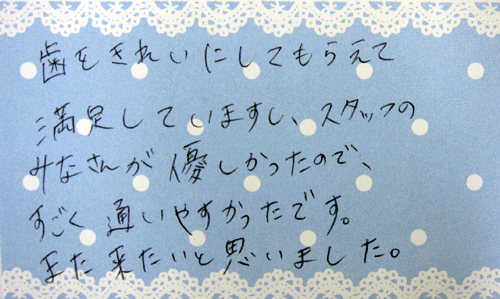 歯をきれいにしてもらえて
満足していますし、スタッフの
みなさんが優しかったので、
すごく通いやすかったです。
また来たいと思いました。